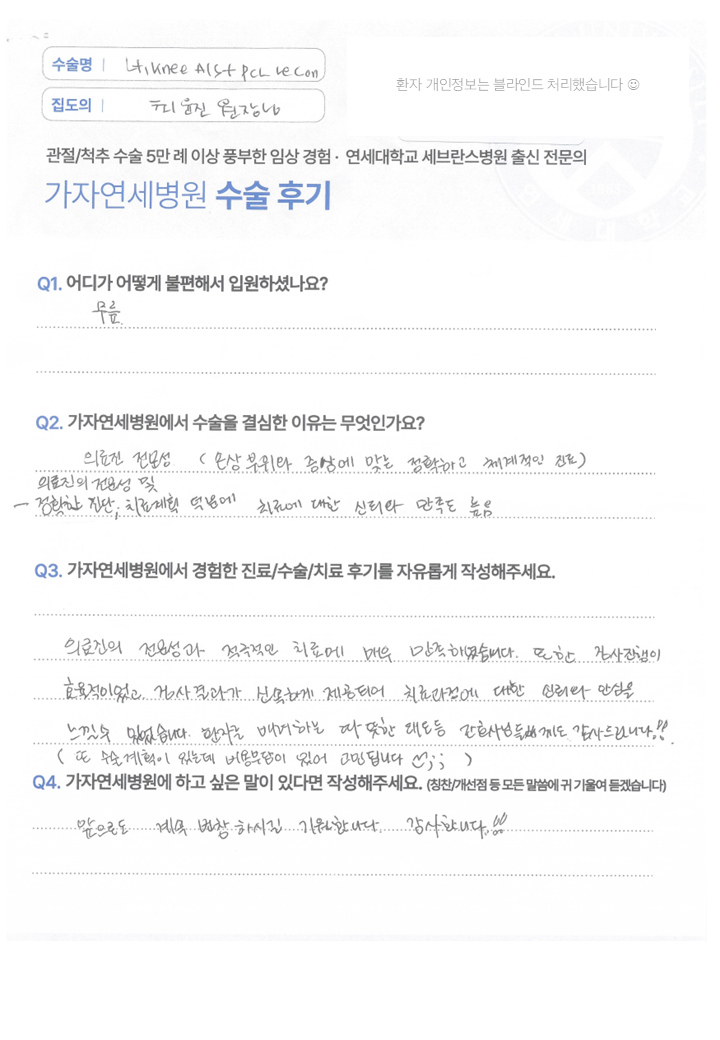 수술명 | Lt. Knee A/S + PCL recon
집도의 | 원장님
환자 개인정보는 블라인드 처리했습니다 ☺
관절/척추 수술 5만 례 이상 풍부한 임상 경험 · 연세대학교 세브란스병원 출신 전문의
가자연세병원 수술 후기
Q1. 어디가 어떻게 불편해서 입원하셨나요?
무릎.
Q2. 가자연세병원에서 수술을 결심한 이유는 무엇인가요?
의료진 전문성 (손상부위와 증상에 맞는 정확하고 체계적인 진료)
의료진의 전문성 및
→ 정확한 진단, 치료계획 덕분에 치료에 대한 신뢰와 만족도 높음
Q3. 가자연세병원에서 경험한 진료/수술/치료 후기를 자유롭게 작성해주세요.
의료진의 전문성과 적극적인 치료에 매우 만족하였습니다. 또한 검사진행이
효율적이었고 검사결과가 신속하게 제공되어 치료과정에 대한 신뢰와 안심을
느낄수 있었습니다. 환자를 배려하는 따뜻한 태도등 간호사님들께도 감사드립니다!!
(또 수술계획이 있는데 비용부담이 있어 고민됩니다 ♡;; )
Q4. 가자연세병원에 하고 싶은 말이 있다면 작성해주세요. (칭찬/개선점 등 모든 말씀에 귀 기울여 듣겠습니다)
앞으로도 계속 번창하시길 기원합니다. 감사합니다!!